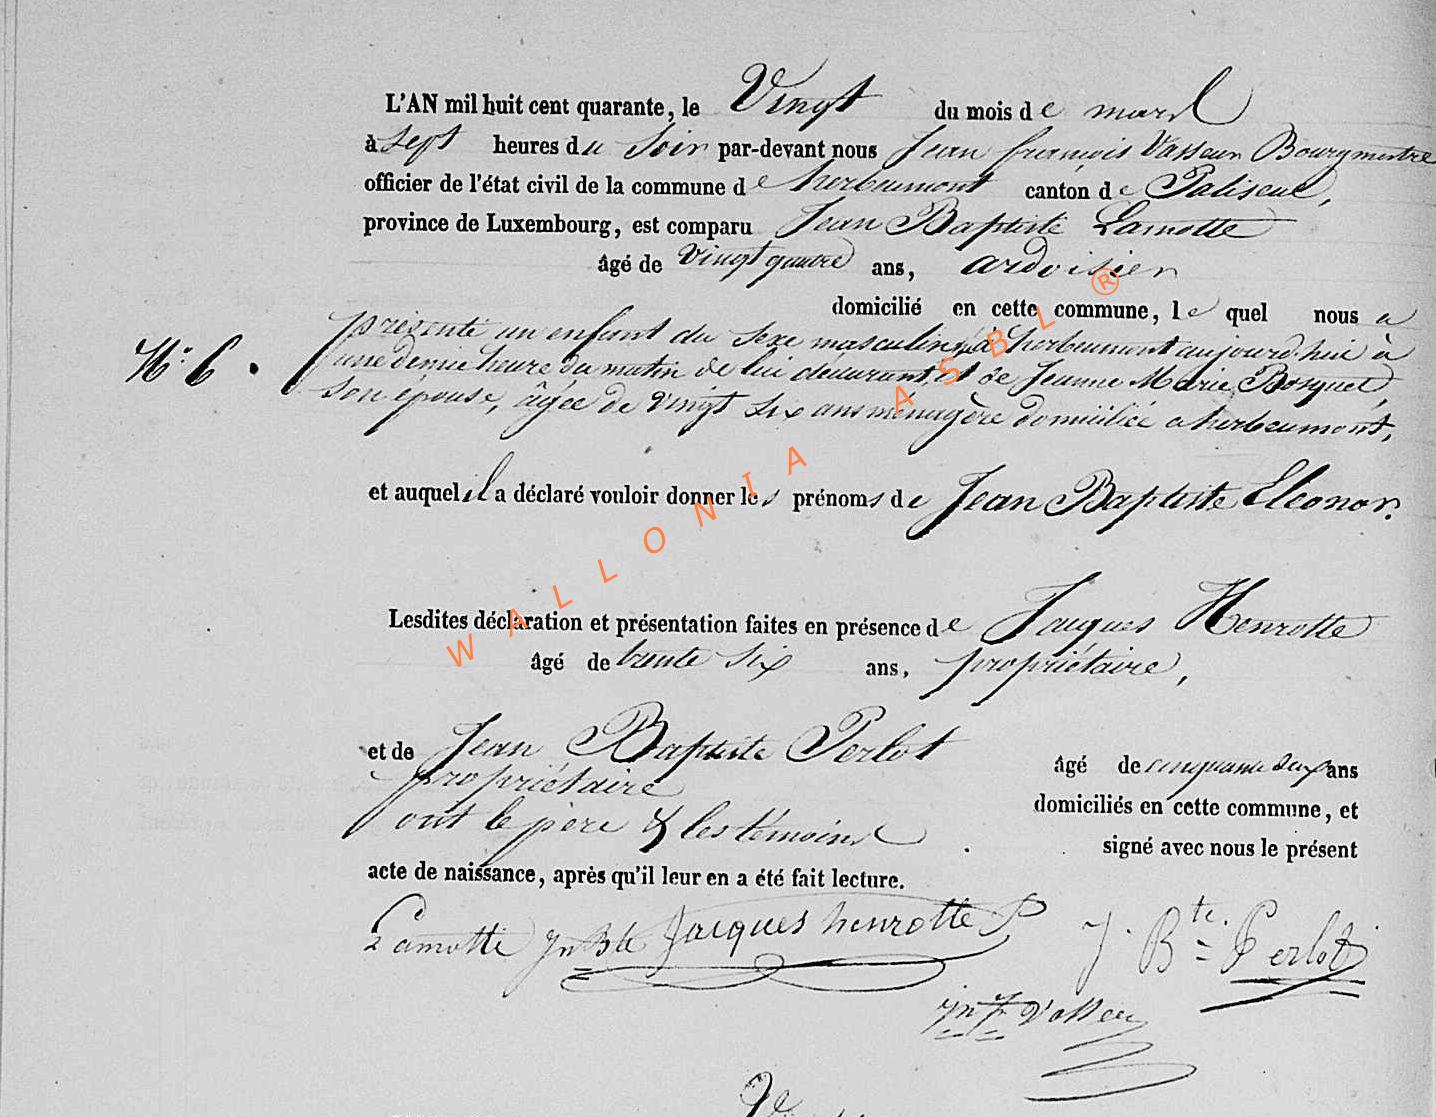 L'AN mil huit cent quarante, le Vingt du mois de mars
à sept heures du soir par-devant nous Jean françois Vasseur Bourgmestre
officier de l'état civil de la commune de herbeumont canton de Paliseul,
province de Luxembourg, est comparu Jean Baptiste Lamotte
âgé de vingt quatre ans, ardoisier
domicilié en cette commune, le quel nous a
présenté un enfant du sexe masculin né à herbeumont aujourd'hui à
N° 6.
une demie heure du matin de lui déclarant, et de Jeanne Marie Bosquet,
son épouse, âgée de vingt six ans ménagère domiciliée a herbeumont,
et auquel il a déclaré vouloir donner les prénoms de Jean Baptiste Eleonor.
Lesdites déclaration et présentation faites en présence de Jacques Henrotte
âgé de trente six ans, propriétaire,
et de Jean Baptiste Perlot âgé de cinquante deux ans
propriétaire domiciliés en cette commune, et
ont le père & les témoins signé avec nous le présent
acte de naissance, après qu'il leur en a été fait lecture.
Lamotte Jn Bte Jacques henrotte J. Bte. Perlot
Jn F Vasseur
WALLONIA ASBL ®